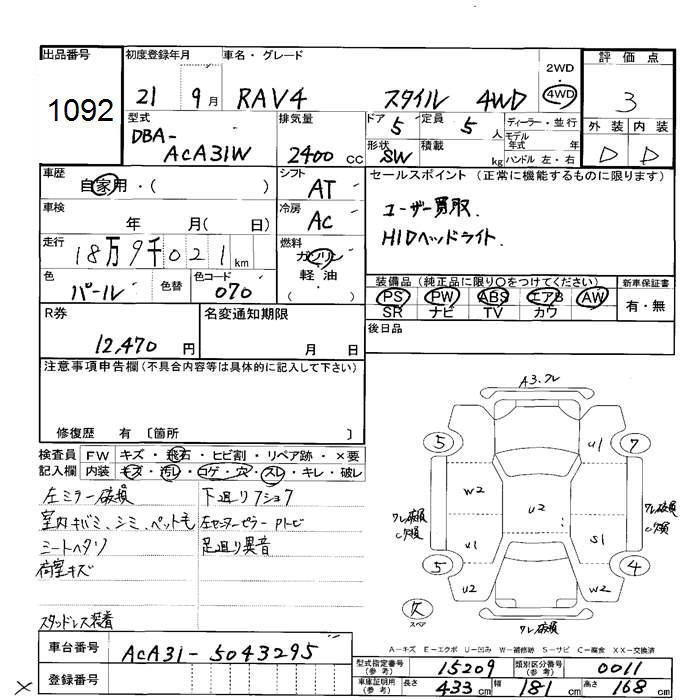 出品番号 初度登録年月 車名・グレード 2WD ・ 4WD 評価点
1092 21 9月 RAV4 スタイル 4WD 3
型式 DBA- ACA31W
排気量 2400 CC
ドア 5 定員 5 人
形状 SW 積載 kg
ディーラー・並行
モデル年式 年
ハンドル 左・右
外装 内装
D D
車歴 自家用・( )
シフト AT
セールスポイント (正常に機能するものに限ります)
ユーザー買取.
HIDヘッドライト.
車検 年 月( 日)
冷房 AC
走行 18万9千021km
燃料 ガソリン・軽油
色 パール 色替 色コード 070
装備品 (純正品に限り○をつけてください) 新車保証書
PS PW ABS エアB AW 有・無
SR ナビ TV カワ
R券 12,470円
名変通知期限 月 日
後日品
注意事項申告欄 (不具合内容等は具体的に記入して下さい)
修復歴 有 〔箇所 〕
検査員記入欄 FW キズ・飛石・ヒビ割・リペア跡・×要
内装 キズ・汚レ・コゲ・穴・スレ・キレ・破レ
左ミラー破損 下廻りフショク
室内キバミ、シミ、ペット毛 左センターピラーPトビ
シートヘタリ 足廻り異音
荷室キズ
スタッドレス装着
A3.ワレ
5 U1 7
W2 U2
ワレ破損
U1 S1
5 4
U2 W2
欠 スペア
ワレ破損
A-キズ E-エクボ U-凹み W-補修跡 S-サビ C-腐食 XX-交換済
車台番号 ACA31-5043295
登録番号
型式指定番号 (参考) 15209 類別区分番号 (参考) 0011
車庫証明用 (参考) 長さ 433cm 幅 181cm 高さ 168cm
×